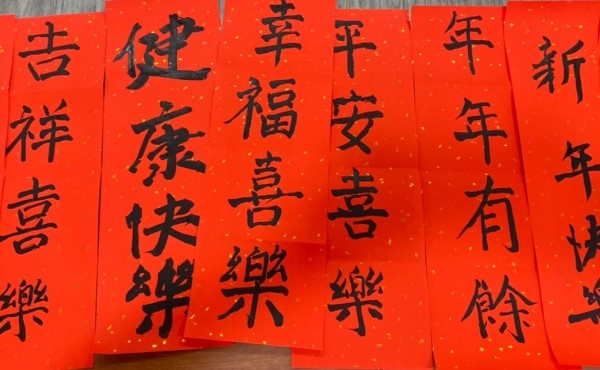 新年快樂
年年有餘
平安喜樂
幸福喜樂
健康快樂
吉祥喜樂